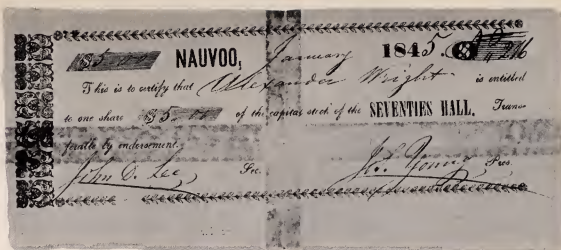 $5.00 NAUVOO, January 1845. 216
This is to certify that Alexander Wright is entitled
to one share $5.00 of the capital stock of the SEVENTIES HALL. Trans-
ferable by endorsement.
John D. Lee, Sec. Young, Pres.